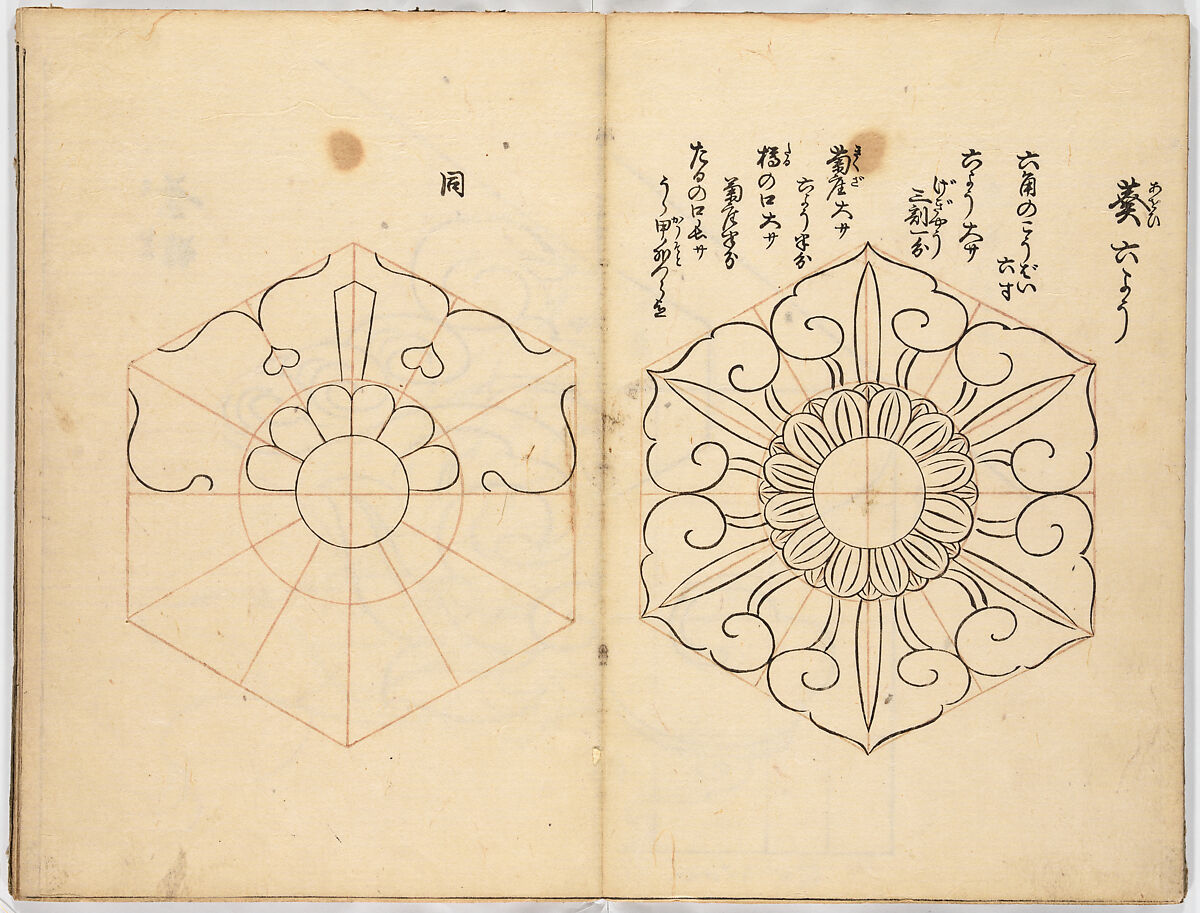 葵六よう
あをひ
六角のこうばい
六寸
六よう大サ
げぎやう
三割一分
菊座大サ
きくざ
六よう半分
樽の口大サ
たる
菊座半分
たるの口長サ
同